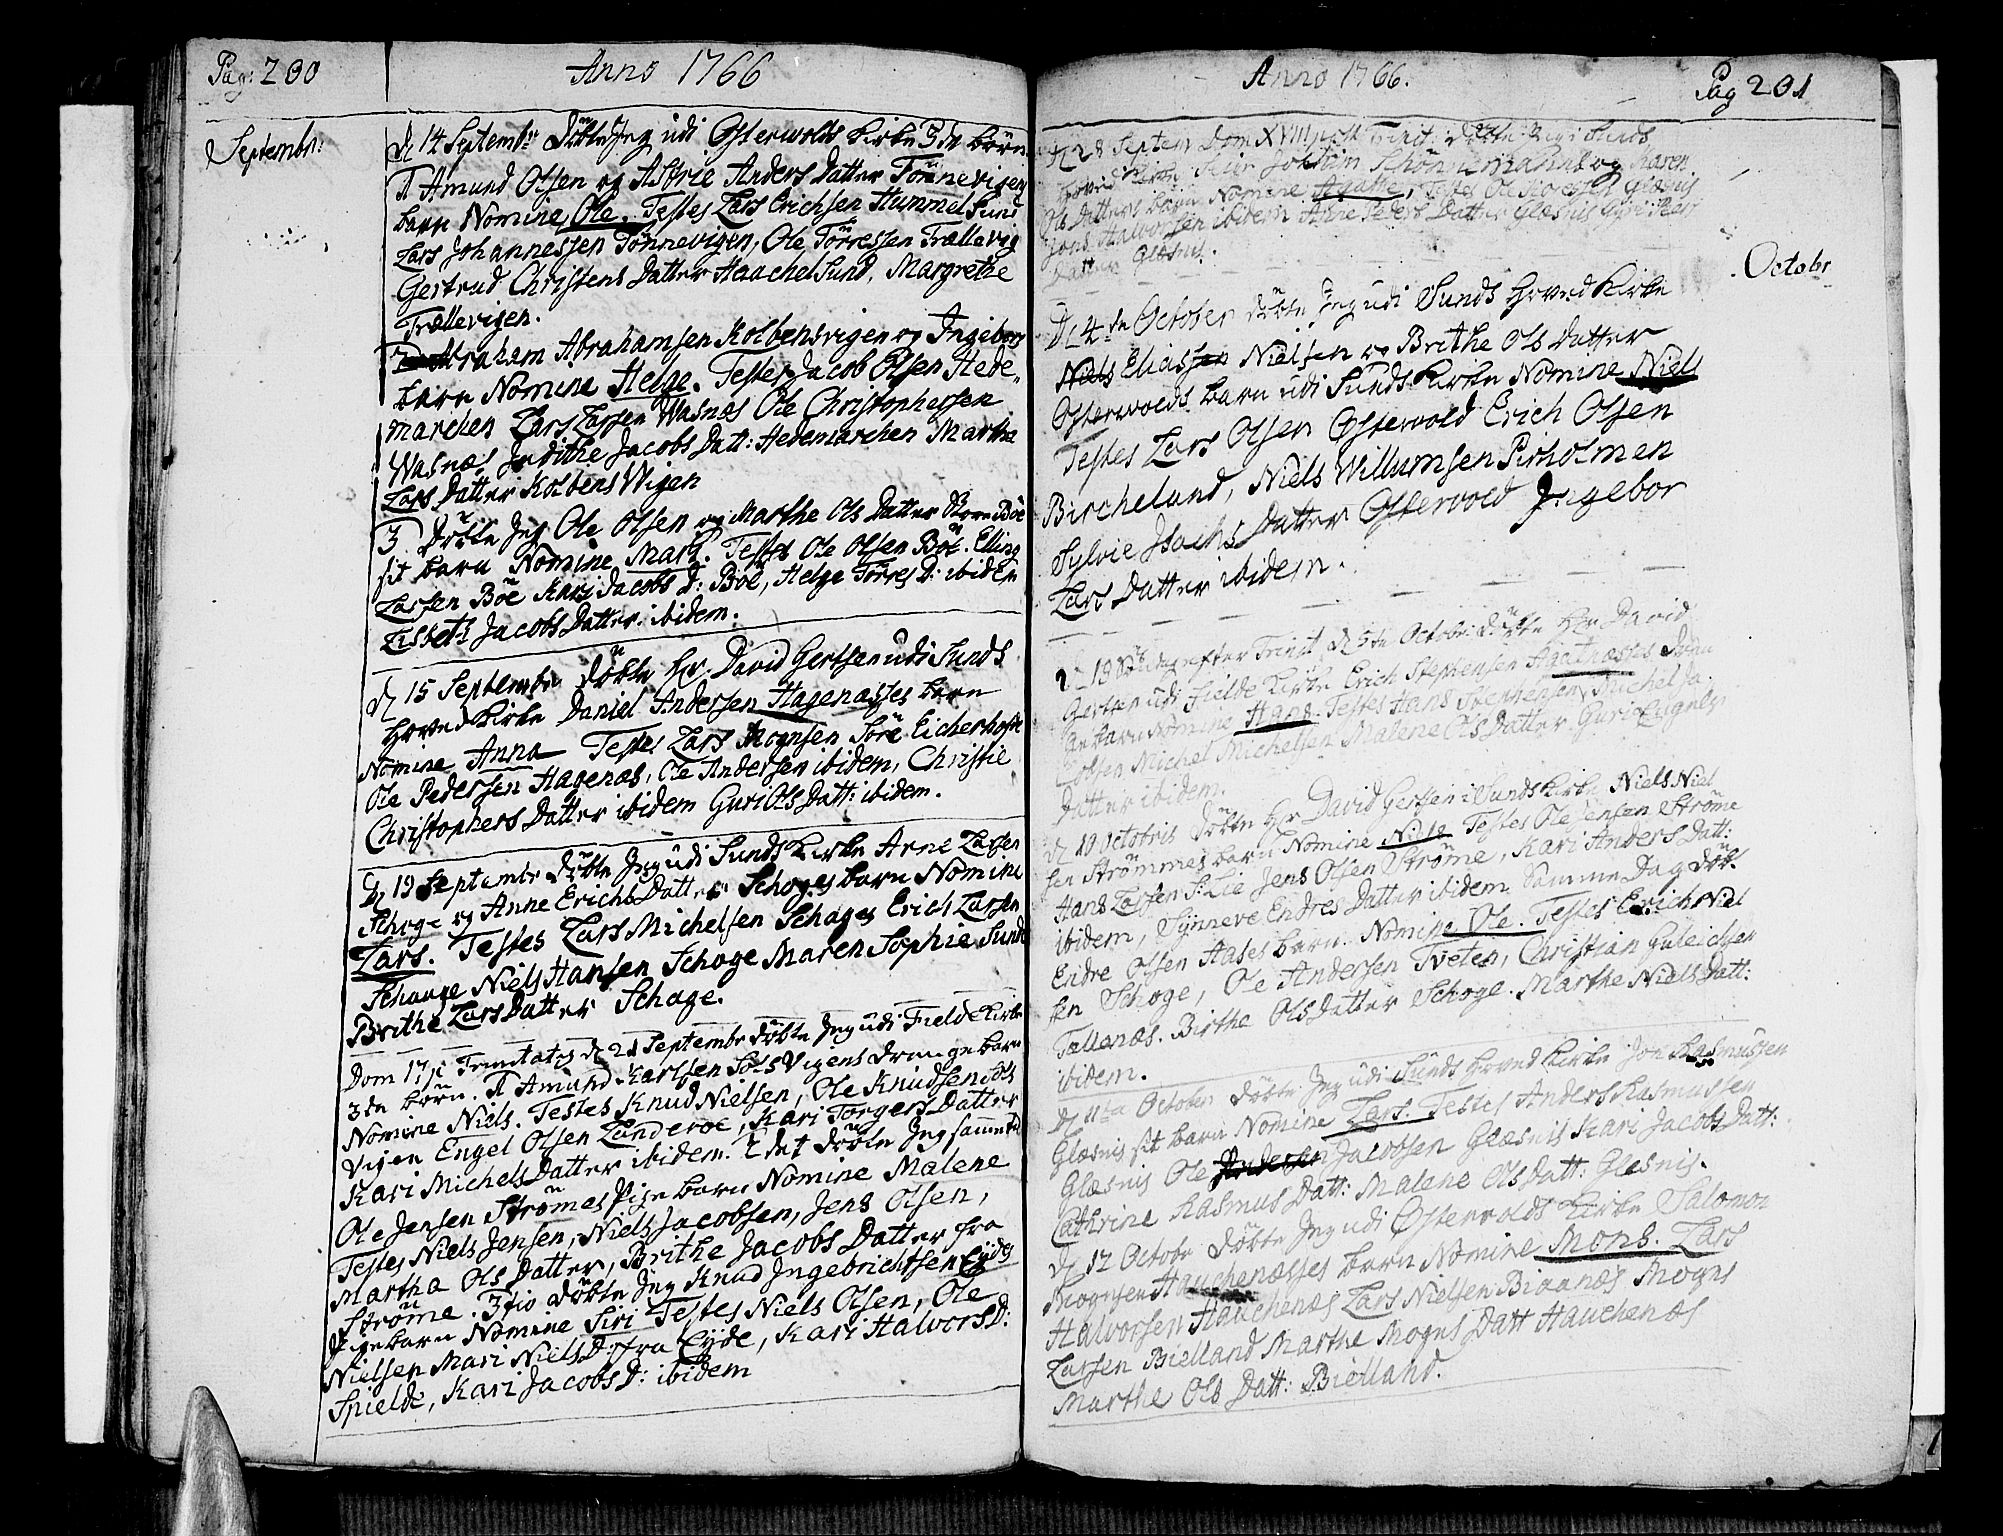 Pag: 200
Anno 1766
Septembr:
d 14 Septembr: döbte Jeg udi Osterwolds Kirke 3de börn
1 Amund Olsen og Astrie Anders Datter Tönnevigens
barn Nomine Ole. Testes Lars Erichsen Hummelsund
Lars Johannessen Tönnevigen, Ole Törressen Trællevig
Gertrud Christens Datter Haachelsund, Margrethe
Trællevigen.
Abraham Abrahamsen Kolbensvigen og Ingebors
barn Nomine Helge. Testes Jacob Olsen Hede-
marchen Lars Larsen Wasnæs Ole Christophersen
Wasnæs Judithe Jacobs Datt: Hedemarchen Martha
Lars Datter Kolbens Wigen
3 Döbte Jeg Ole Olsen og Marthe Ols Datter Store Böe
sit barn Nomine Mari. Testes Ole Olsen Böe. Elling
Larsen Böe Kari Jacobs D: Böe, Helge Törres D: ibidem
Lisbeth Jacobs Datter ibidem.
d 15 Septembr döbte Hr. David Gertsen udi Sunds
Hoved Kirke Daniel Andersen Hagenæsses barn
Nomine Anna Testes Lars Mognsen Söre Eicherhofn
Ole Pedersen Hagenæs, Ole Andersen ibidem, Christie
Christophers Datter ibidem Guri Ols Datt: ibidem.
d 19 Septembr döbte Jeg udi Sunds Kirke Arne Larsen
Schoge og Anne Erichs Datter Schoges barn Nomine
Lars. Testes Lars Michelsen Schages Erich Larsen
Schauge Niels Hansen Schoge Maren Sophie Sund
Brithe Lars Datter Schage.
Dom 17 p Trinitatis d 21 Septembr döbte Jeg udi Fielde Kirke
3de börn. 1 Amund Karlsen Solsvigens drenge barn
Nomine Niels. Testes Knud Nielsen, Ole Knudsen Sols
vigen Engel Olsen Landeroe, Kari Torgers Datter
Kari Michels Datter ibidem. 2det döbte Jeg sammested
Ole Jensen Strömes Pige barn Nomine Malene
Testes Niels Jensen, Niels Jacobsen, Jens Olsen,
Martha Ols Datter, Brithe Jacobs Datter fra
Ströme. 3tio döbte Jeg Knud Ingebrichtsen Eydes
Pige barn Nomine Siri Testes Niels Olsen, Ole
Nielsen Mari Niels D: fra Eyde, Kari Halvors D:
Spielde, Kari Jacobs D: ibidem
Anno 1766.
Pag 201
d 28 Septem Dom XVIII post Trinit: döbte Jeg i Sunds
Hoved Kirke Jochim Schönemann og Karen
Ols Datters barn Nomine Agathe, Testes Ole Glæsnis
Jens Halvorsen ibidem Anne Peders Datter Glæsnis
Datter Glæsnis.
Octobr
D 4de October döbte Jeg udi Sunds Hoved Kirke
Niels Eliassen Nielsen og Brithe Ols Datter
Osterwolds barn udi Sunds Kirke Nomine Niels
Testes Lars Olsen Osterwold Erich Olsen
Bircheland, Niels Willumsen Pirholmen
Sylvie Isachs Datter Osterwold Ingebor
Lars Datter ibidem.
19 Söndag efter Trinit d 5te Octobr: döbte Hr David
Gertsen udi Fielde Kirke Erich Stephensen Agatnæsses
barn Nomine Hans. Testes Hans Stephensen, Michel Ja
cobsen Michel Michelsen Malene Ols Datter Guri
Datter ibidem.
d 10 Octobris döbte Hr David Gertsen i Sunds Kirke Niels Niel
sen Strömmes barn Nomine Niels Testes Ole Jensen Ströme
Hans Larsen S: Lie Jens Olsen Ströme, Kari Anders Datt:
ibidem, Synneve Endres Datter ibidem. Samme Dag döbt
Endre Olsen Hases barn Nomine Ole. Testes Erich Niel
sen Schoge, Ole Andersen Tveten, Christian Guleichsen
Tollenæs. Birthe Ols Datter Schoge. Marthe Niels Datt:
ibidem.
d 11te October döbte Jeg udi Sunds Hoved Kirke Jon Rasmussen
Glæsnis sit barn Nomine Lars. Testes Anders Rasmussen
Glæsnis Ole Andersen Jacobsen Glæsnis Kari Jacobs Datt:
Cathrine Rasmus Datt: Malene Ols Datt: Glæsnis.
d 12 Octobr döbte Jeg udi Österwolds Kirke Salomon
Mognsen Hauchenæsses barn Nomine Mons. Lars
Halvorsen Hauchenæs Lars Nielsen Biaanæs Mogns
Larsen Bielland Marthe Mogns Datt Hauchenæs
Marthe Ols Datt: Bielland.